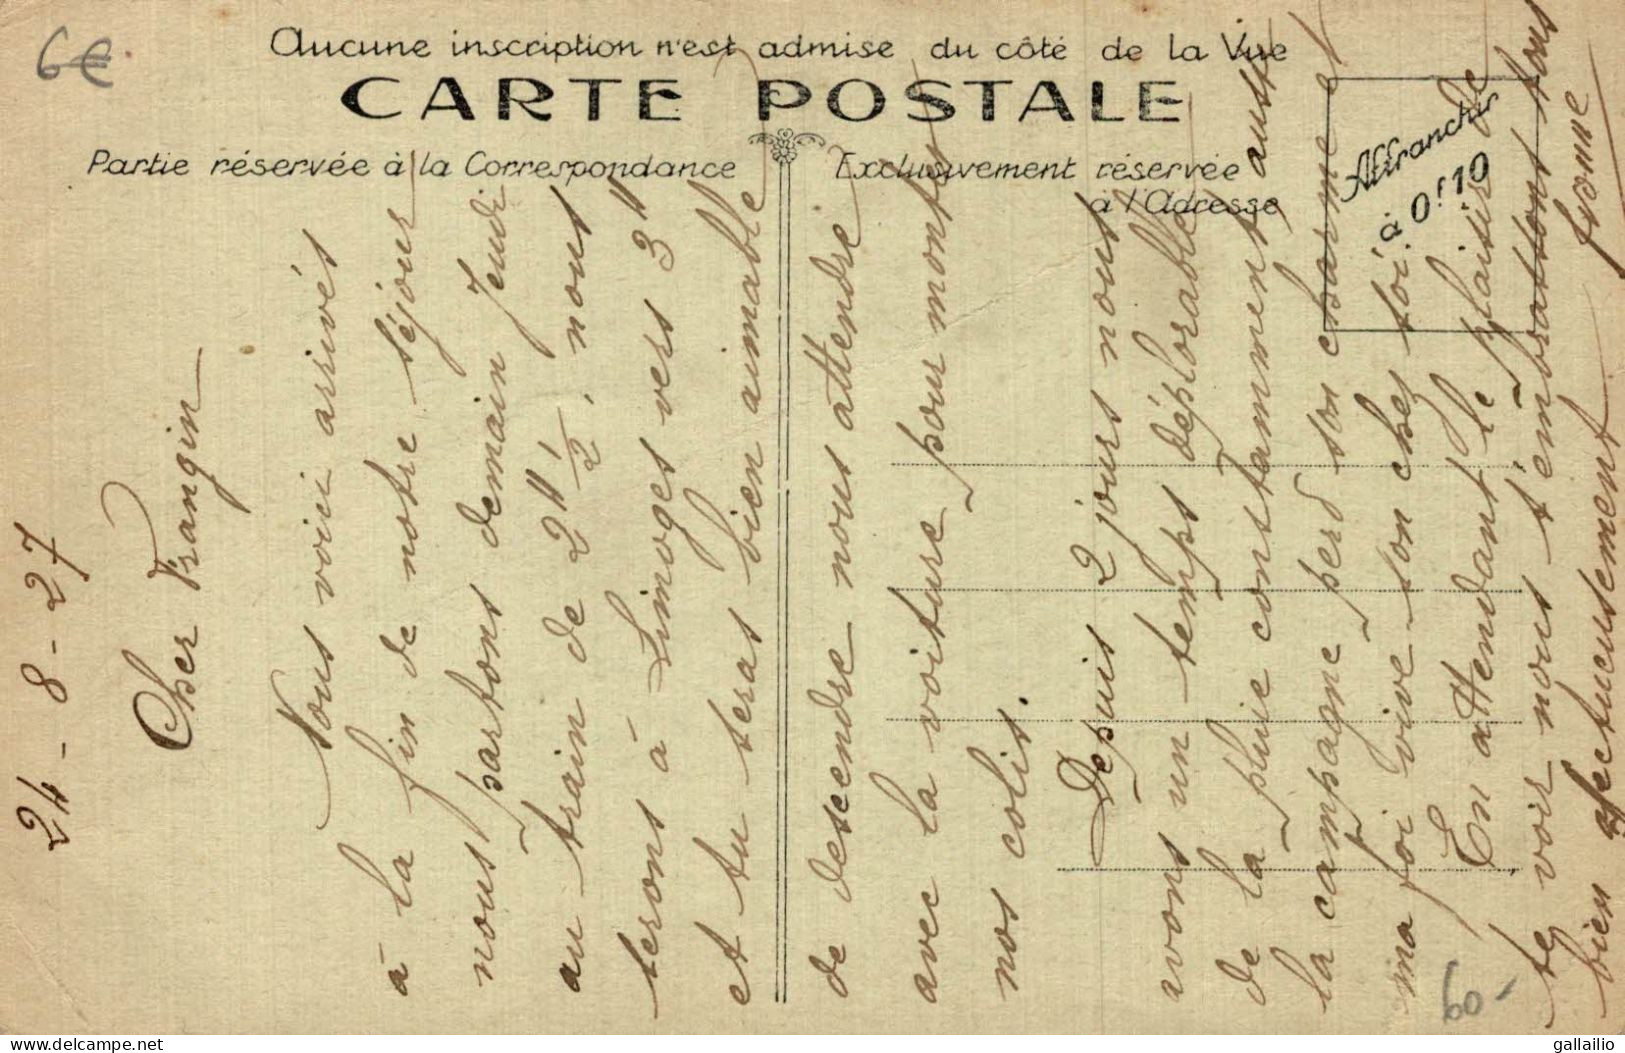 6€
Aucune inscription n'est admise du côté de la Vue
CARTE POSTALE
Partie réservée à la Correspondance
Exclusivement réservée
à l'Adresse
Affranchir
à 0f10
24-8-27
Cher Frangin
Nous voici arrivés
à la fin de notre séjour
nous partons demain Jeudi
au train de 2H 1/2, nous
serons à Limoges vers 3H
et tu seras bien aimable
de descendre nous attendre
avec la voiture pour monter
nos colis.
Depuis 2 jours nous
avons un temps déplorable
de la pluie constamment aussi
la campagne perd son charme et
ma foi vive son chez soi.
En attendant le plaisir de
te voir nous t'embrassons tous
bien affectueusement
Yvonne
60-
gallailio
Delcampe.net